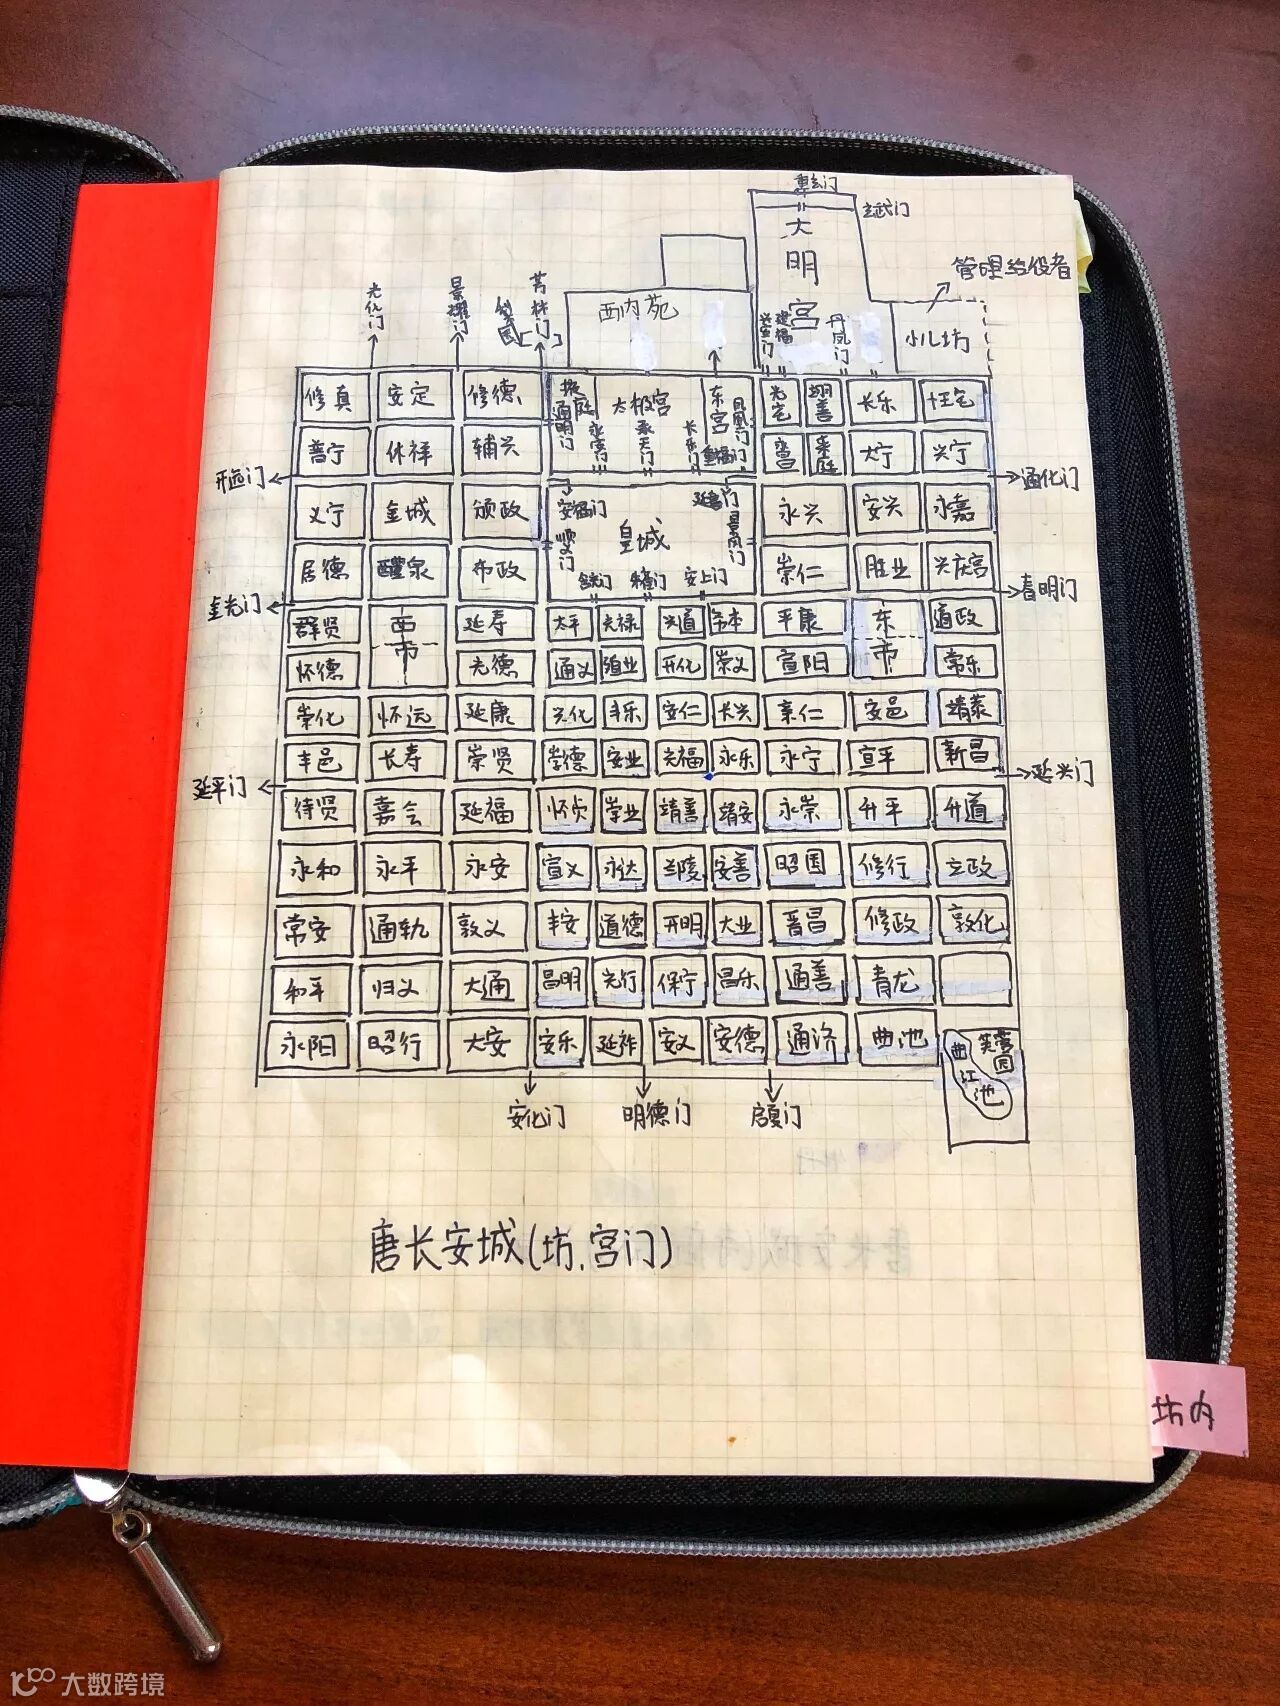 重玄门
玄武门
大明宫
管理给役者
光化门
景耀门
芳林门
西内苑
兴安门
建福
丹凤门
小儿坊
修真 安定 修德 掖庭 太极宫 东宫 光宅 翊善 长乐
通明门 永安门 承天门 长乐门 凤凰门
普宁 休祥 辅兴 重福门 永昌 来庭 大宁 兴宁
开远门 通化门
义宁 金城 颁政 安福门 延喜门 永兴 安兴 永嘉
顺义门 皇城 景凤门
居德 醴泉 布政 含光门 朱雀门 安上门 崇仁 胜业 兴庆宫
金光门 春明门
群贤 西市 延寿 太平 光禄 兴道 务本 平康 东市 道政
怀德 光德 通义 殖业 开化 崇义 宣阳 常乐
崇化 怀远 延康 兴化 丰乐 安仁 长兴 亲仁 安邑 靖恭
丰邑 长寿 崇贤 崇德 安业 光福 永乐 永宁 宣平 新昌
延平门 延兴门
待贤 嘉会 延福 怀贞 崇业 靖善 靖安 永崇 升平 升道
永和 永平 永安 宣义 永达 兰陵 安善 昭国 修行 立政
常安 通轨 敦义 丰安 道德 开明 大业 晋昌 修政 敦化
和平 归义 大通 昌明 光行 保宁 昌乐 通善 青龙
永阳 昭行 大安 安乐 延祚 安义 安德 通济 曲池
曲江池 芙蓉园
安化门 明德门 启夏门
唐长安城(坊.宫门)
坊内
大数跨境